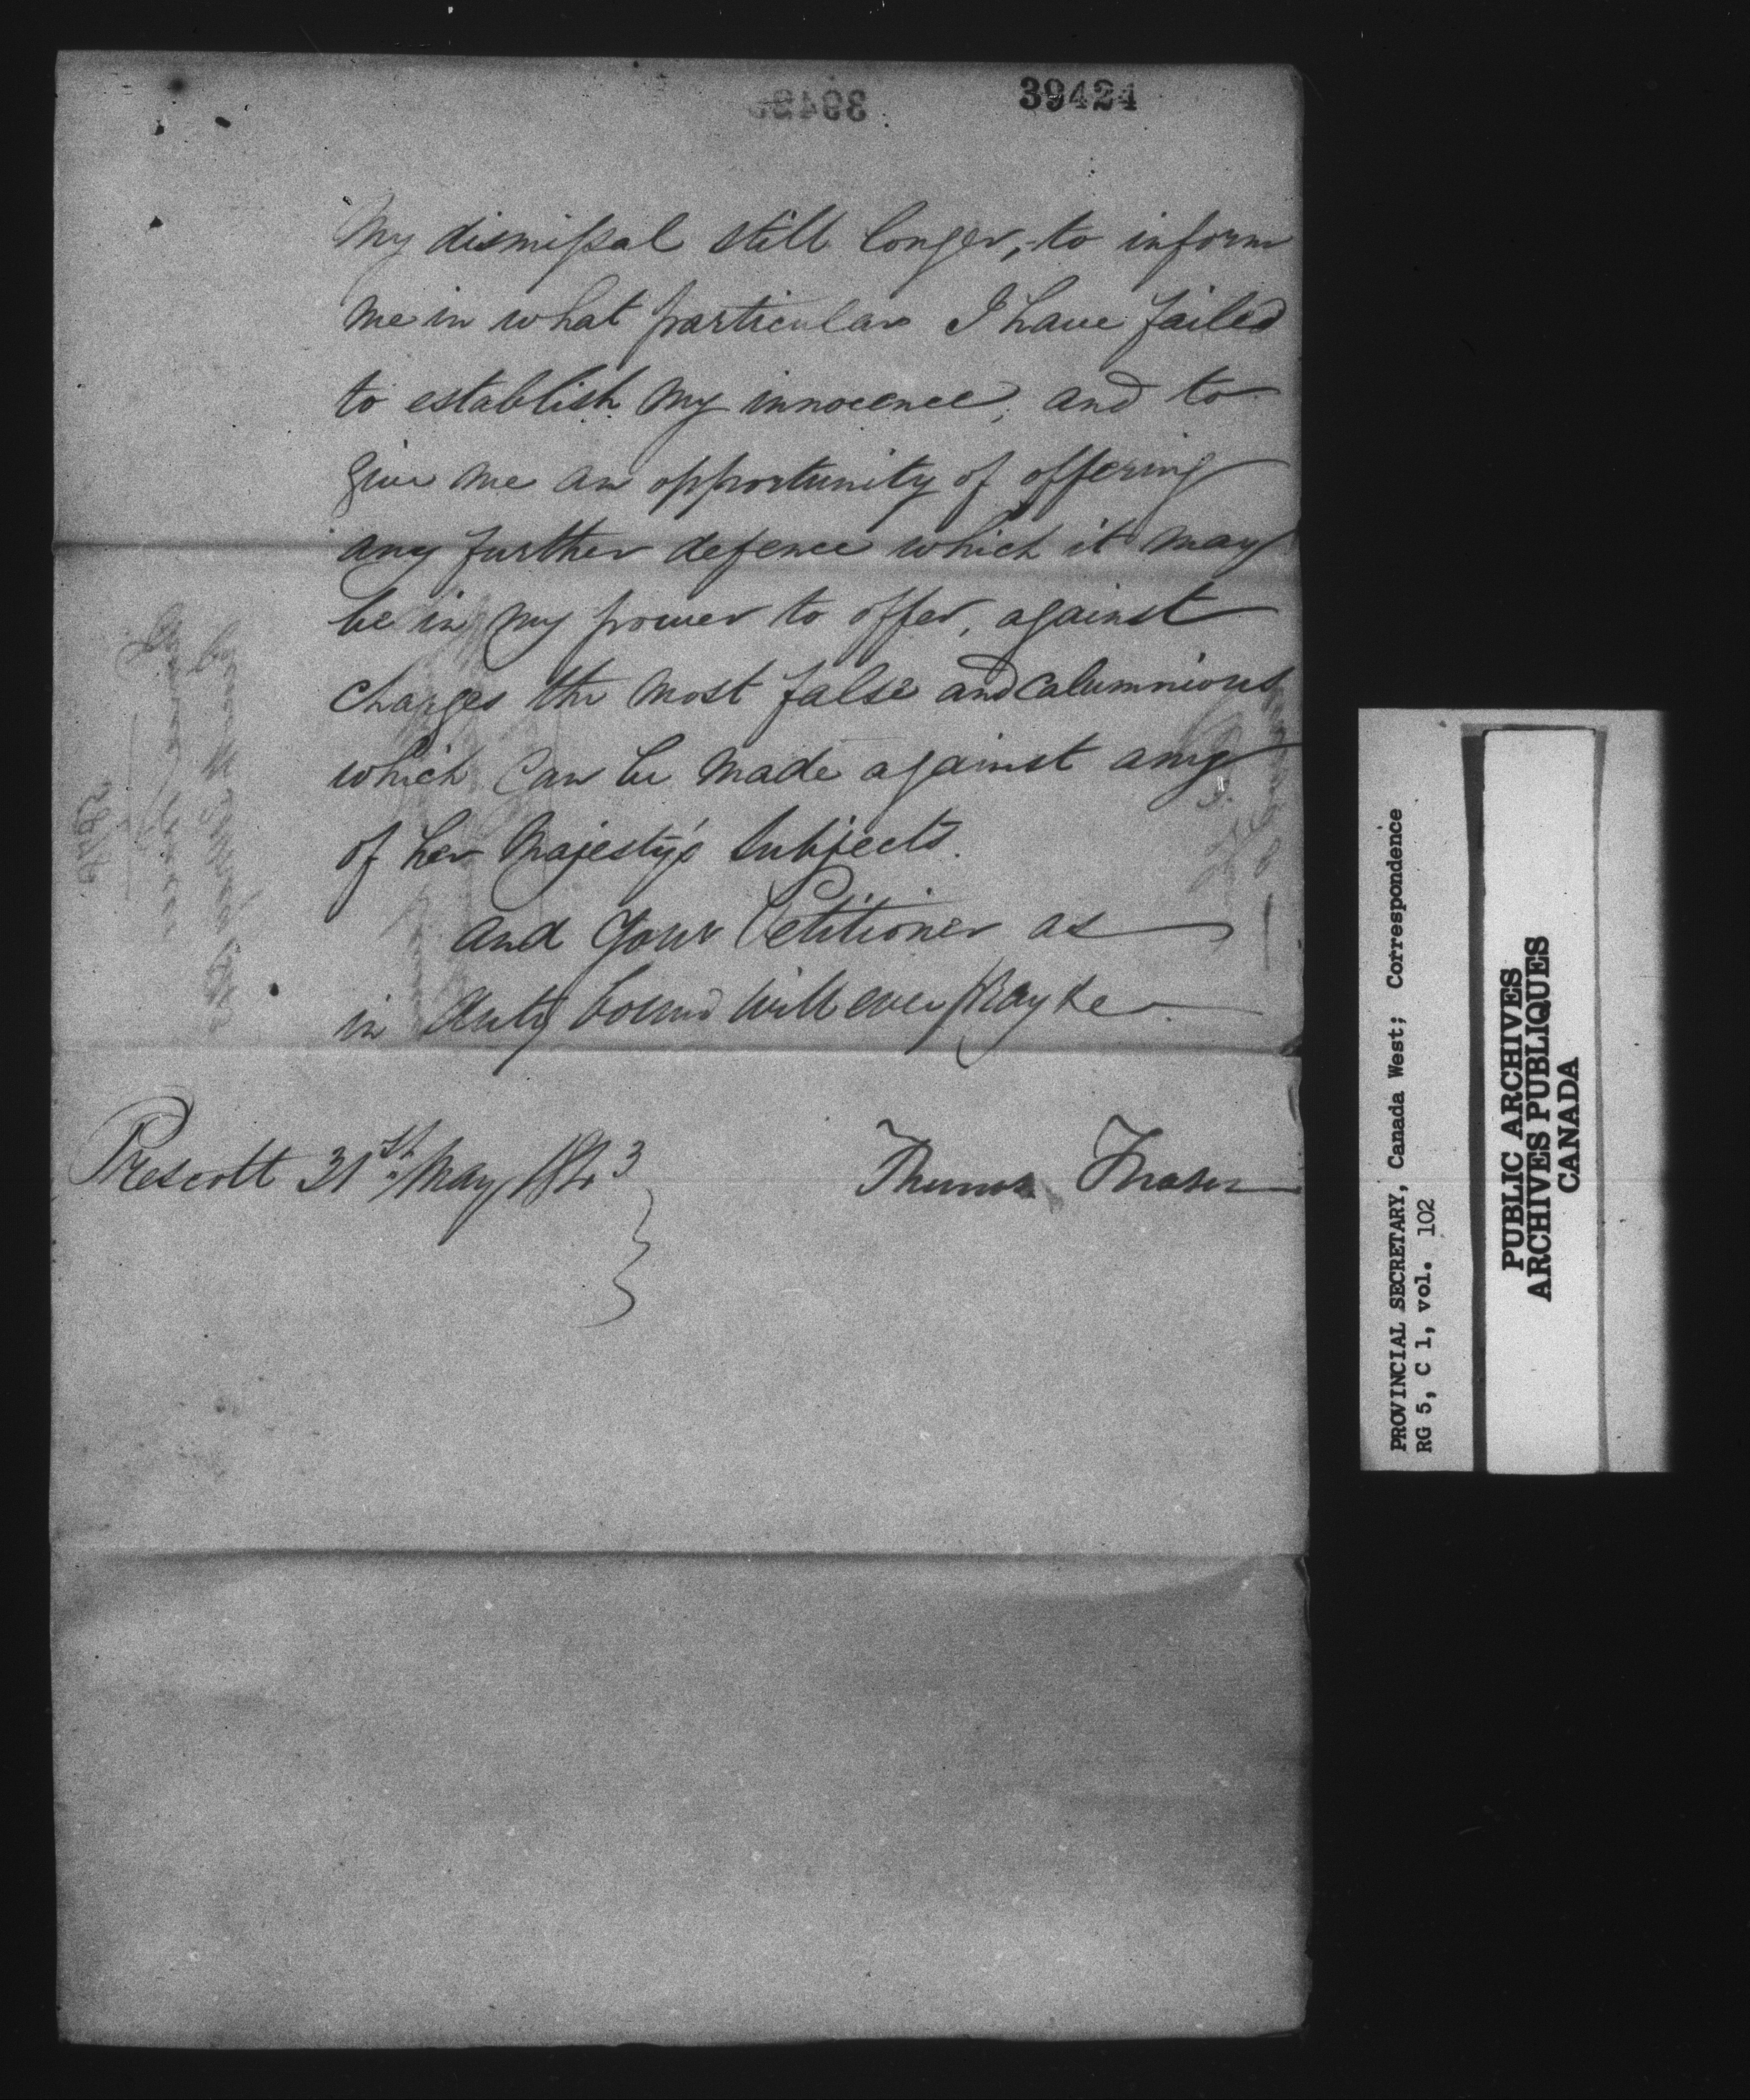 39424
My dismissal still longer, to inform
me in what particular I have failed
to establish my innocence, and to
give me an opportunity of offering
any further defence which it may
be in my power to offer, against
charges the most false and calumnious
which can be made against any
of her Majesty's Subjects.
and your Petitioner as
in duty bound will ever pray &c
Prescott 31st May 1843
Thomas Fraser
PROVINCIAL SECRETARY, Canada West; Correspondence
RG 5, C 1, vol. 102
PUBLIC ARCHIVES
ARCHIVES PUBLIQUES
CANADA